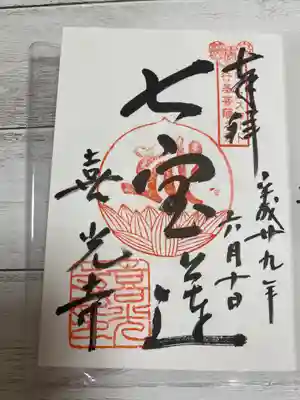 奉拝
平成廿九年
六月十日
七宝蓮
喜光寺